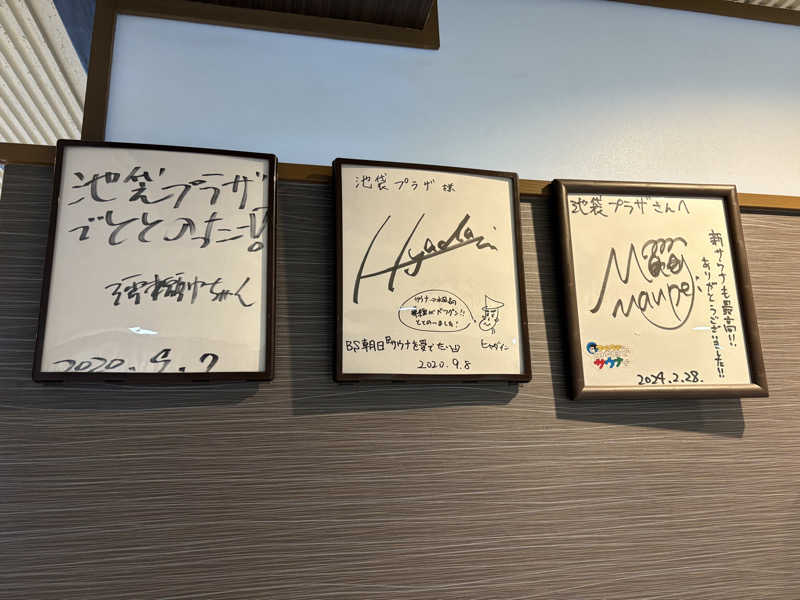 池袋プラザ
でととのった!!
ちゃん
2020.9.7
池袋プラザ様
Hyadain
サウナ→水風呂の
がバツグン!!
ととのーました!
ヒャダイン
BS朝日『サウナを愛でたい』
2020.9.8
池袋プラザさんへ
新サウナも最高!!
ありがとうございました!!
サウナ
2024.2.28.